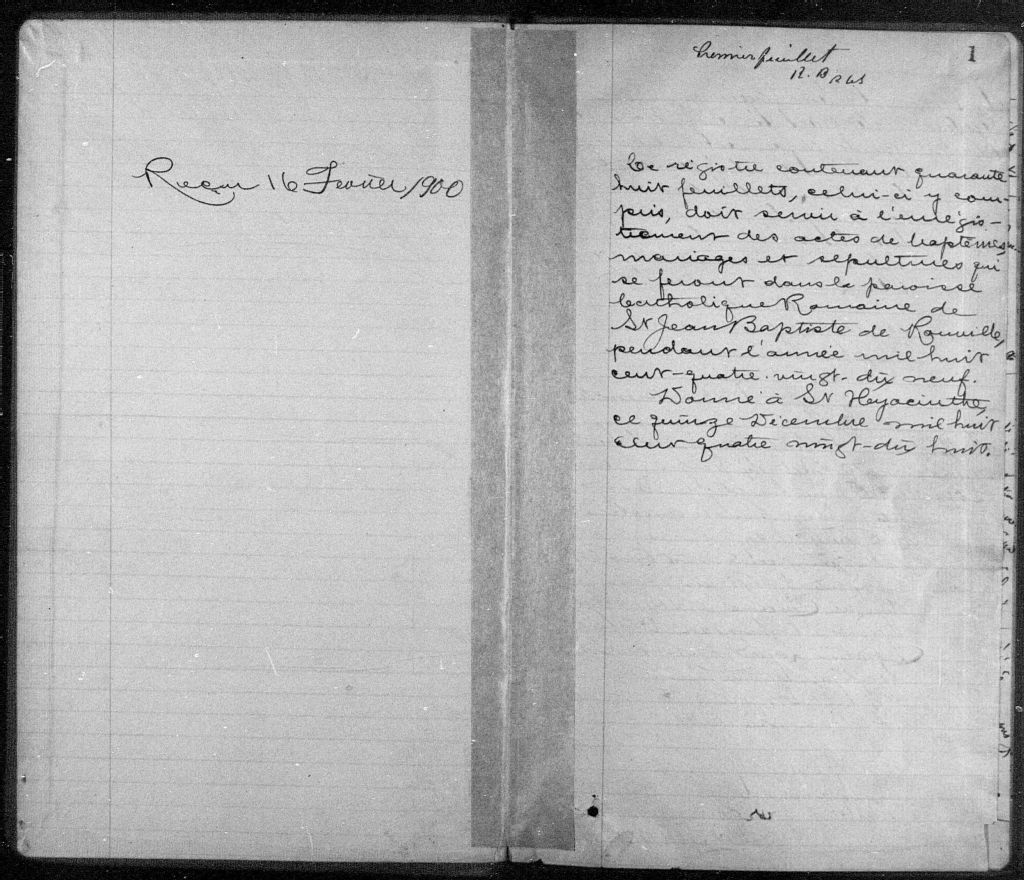 Reçu 16 Février 1900
1
Premier feuillet
Ce régistre contenant quarante
huit feuillets, celui-ci y com-
pris, doit servir à l'enrégis-
trement des actes de baptêmes,
mariages et sépultures qui
se feront dans la paroisse
Catholique Romaine de
St Jean Baptiste de Rouville,
pendant l'année mil huit
cent-quatre-vingt-dix neuf.
Donné à St Hyacinthe,
ce quinze Décembre mil huit
cent quatre vingt-dix huit.